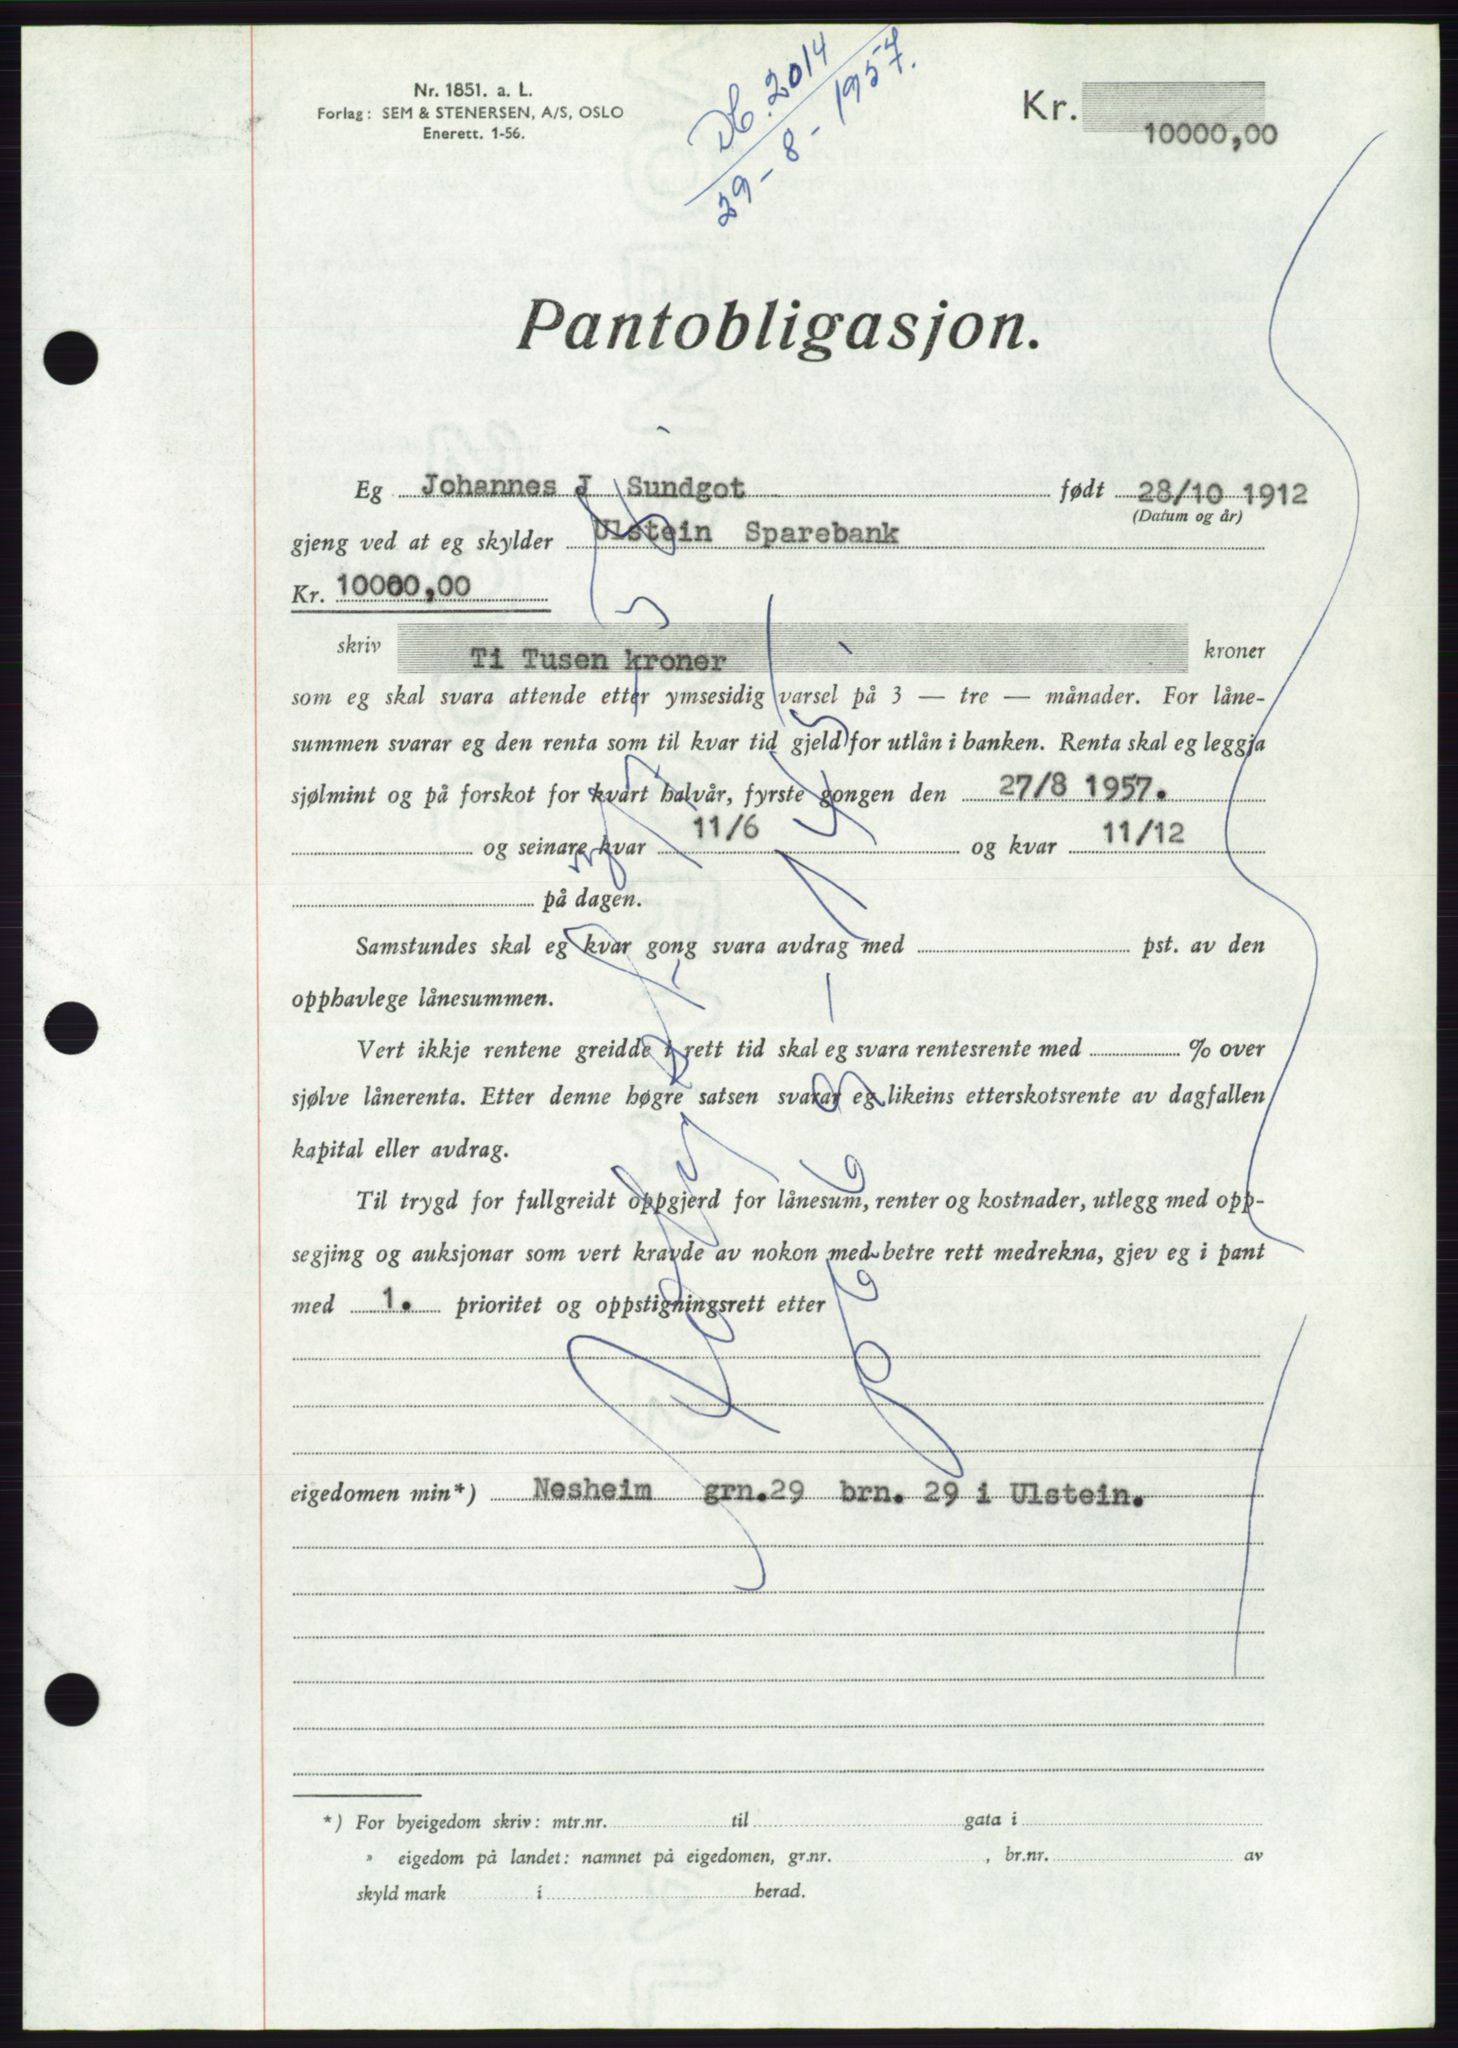 Nr. 1851. a. L.
Forlag: SEM & STENERSEN, A/S, OSLO
Enerett. 1-56.
Db. 2014
29-8-1957.
Kr. 10000,00
Pantobligasjon.
Eg Johannes J Sundgot født 28/10 1912
(Datum og år)
gjeng ved at eg skylder Ulstein Sparebank
Kr. 10000,00
skriv Ti Tusen kroner kroner
som eg skal svara attende etter ymsesidig varsel på 3 — tre — månader. For låne-
summen svarar eg den renta som til kvar tid gjeld for utlån i banken. Renta skal eg leggja
sjølmint og på forskot for kvart halvår, fyrste gongen den 27/8 1957.
og seinare kvar 11/6 og kvar 11/12
på dagen.
Samstundes skal eg kvar gong svara avdrag med pst. av den
opphavlege lånesummen.
Vert ikkje rentene greidde i rett tid skal eg svara rentesrente med % over
sjølve lånerenta. Etter denne høgre satsen svarar eg likeins etterskotsrente av dagfallen
kapital eller avdrag.
Til trygd for fullgreidt oppgjerd for lånesum, renter og kostnader, utlegg med opp-
segjing og auksjonar som vert kravde av nokon med betre rett medrekna, gjev eg i pant
med 1. prioritet og oppstigningsrett etter
eigedomen min*) Nesheim grn.29 brn. 29 i Ulstein.
*) For byeigedom skriv: mtr.nr. til gata i
" eigedom på landet: namnet på eigedomen, gr.nr. , br.nr. av
skyld mark i herad.